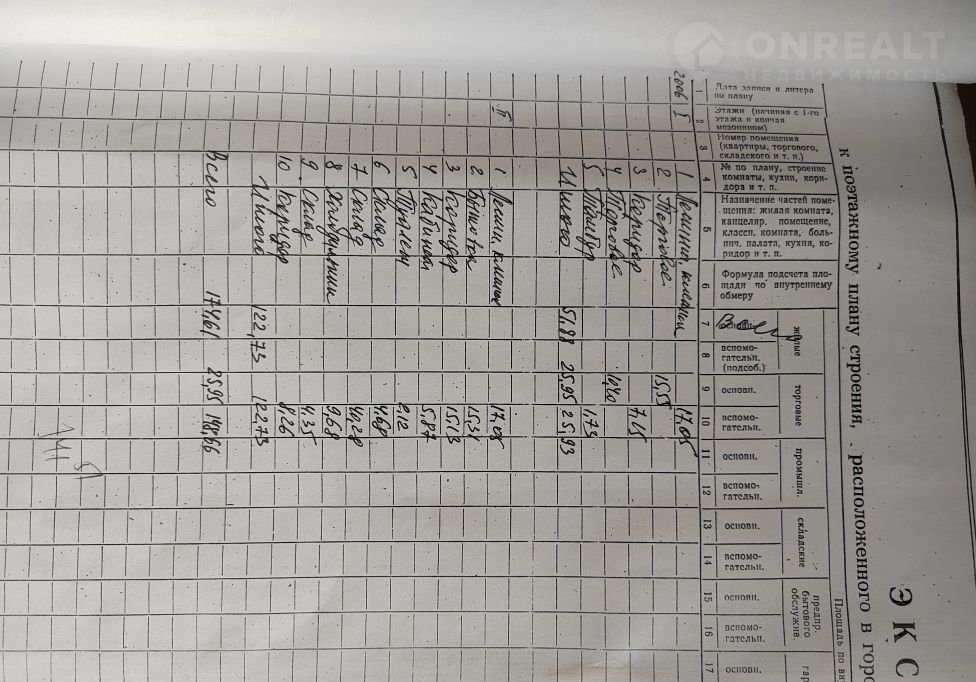 ONREALT
НЕДВИЖИМОСТЬ
ЭКС
к поэтажному плану строения, расположенного в горо
Площадь по вн
жилые
торговые
промышл.
складские
предпр. бытового обслужив.
гар
Дата записи и литера по плану
Этажи (начиная с 1-го этажа и кончая мезонином)
Номер помещения (квартиры, торгового, складского и т. п.)
№ по плану, строение комнаты, кухни, коридора и т. п.
Назначение частей помещения: жилая комната, канцеляр. помещение, классн. комната, больнич. палата, кухня, коридор и т. п.
Формула подсчета площади по внутреннему обмеру
Всего
основн.
вспомогательн. (подсоб.)
основн.
вспомогательн.
основн.
вспомогательн.
основн.
вспомогательн.
основн.
вспомогательн.
основн.
1 2 3 4 5 6 7 8 9 10 11 12 13 14 15 16 17
2006 I 1 Лестничн. клетка 17,05
2 Торговое 15,55
3 Коридор 7,15
4 Торговое 10,40
5 Тамбур 1,73
Итого 51,88 25,95 25,93
II 1 Лестн. клетка 17,05
2 Бытовая 15,31
3 Коридор 15,13
4 Кабинет 5,87
5 Туалет 2,12
6 Склад 4,68
7 Склад 40,28
8 9,68
9 Склад 4,35
10 Коридор 8,26
Итого 122,73 122,73
Всего 174,61 25,95 148,66